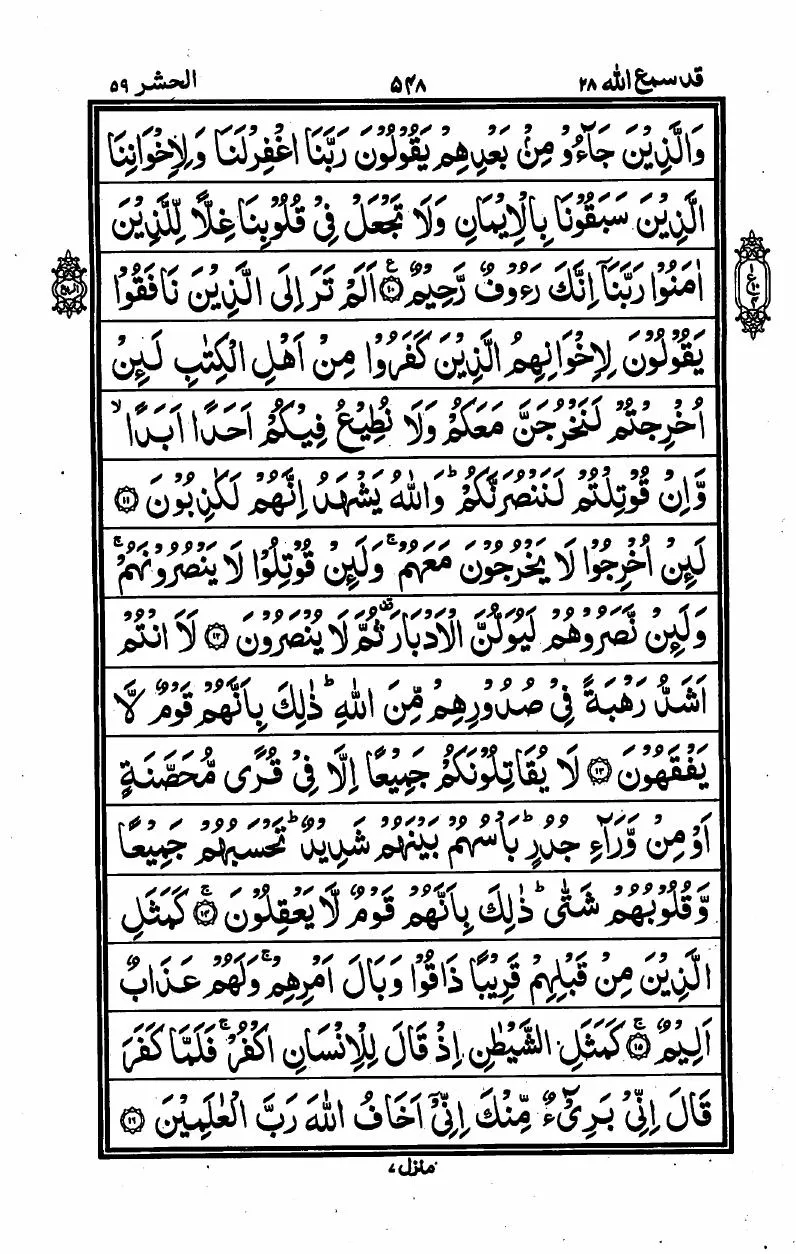 قد سمع الله ۲۸
۵۴۸
الحشر ۵۹
وَالَّذِيْنَ جَآءُوْ مِنْۢ بَعْدِهِمْ يَقُوْلُوْنَ رَبَّنَا اغْفِرْ لَنَا وَلِاِخْوَانِنَا
الَّذِيْنَ سَبَقُوْنَا بِالْاِيْمَانِ وَلَا تَجْعَلْ فِيْ قُلُوْبِنَا غِلًّا لِّلَّذِيْنَ
اٰمَنُوْا رَبَّنَآ اِنَّكَ رَءُوْفٌ رَّحِيْمٌ ۧ۝۱۰ اَلَمْ تَرَ اِلَى الَّذِيْنَ نَافَقُوْا
يَقُوْلُوْنَ لِاِخْوَانِهِمُ الَّذِيْنَ كَفَرُوْا مِنْ اَهْلِ الْكِتٰبِ لَىِٕنْ
اُخْرِجْتُمْ لَنَخْرُجَنَّ مَعَكُمْ وَلَا نُطِيْعُ فِيْكُمْ اَحَدًا اَبَدًا ۙ
وَّاِنْ قُوْتِلْتُمْ لَنَنْصُرَنَّكُمْ ؕ وَاللّٰهُ يَشْهَدُ اِنَّهُمْ لَكٰذِبُوْنَ ۝۱۱
لَىِٕنْ اُخْرِجُوْا لَا يَخْرُجُوْنَ مَعَهُمْ ۚ وَلَىِٕنْ قُوْتِلُوْا لَا يَنْصُرُوْنَهُمْ ۚ
وَلَىِٕنْ نَّصَرُوْهُمْ لَيُوَلُّنَّ الْاَدْبَارَ ۣ ثُمَّ لَا يُنْصَرُوْنَ ۝۱۲ لَا اَنْتُمْ
اَشَدُّ رَهْبَةً فِيْ صُدُوْرِهِمْ مِّنَ اللّٰهِ ؕ ذٰلِكَ بِاَنَّهُمْ قَوْمٌ لَّا
يَفْقَهُوْنَ ۝۱۳ لَا يُقَاتِلُوْنَكُمْ جَمِيْعًا اِلَّا فِيْ قُرًى مُّحَصَّنَةٍ
اَوْ مِنْ وَّرَآءِ جُدُرٍ ؕ بَاْسُهُمْ بَيْنَهُمْ شَدِيْدٌ ؕ تَحْسَبُهُمْ جَمِيْعًا
وَّقُلُوْبُهُمْ شَتّٰى ؕ ذٰلِكَ بِاَنَّهُمْ قَوْمٌ لَّا يَعْقِلُوْنَ ۚ۝۱۴ كَمَثَلِ
الَّذِيْنَ مِنْ قَبْلِهِمْ قَرِيْبًا ذَاقُوْا وَبَالَ اَمْرِهِمْ ۚ وَلَهُمْ عَذَابٌ
اَلِيْمٌ ۚ۝۱۵ كَمَثَلِ الشَّيْطٰنِ اِذْ قَالَ لِلْاِنْسَانِ اكْفُرْ ۚ فَلَمَّا كَفَرَ
قَالَ اِنِّيْ بَرِيْٓءٌ مِّنْكَ اِنِّيْٓ اَخَافُ اللّٰهَ رَبَّ الْعٰلَمِيْنَ ۝۱۶
منزل ۷